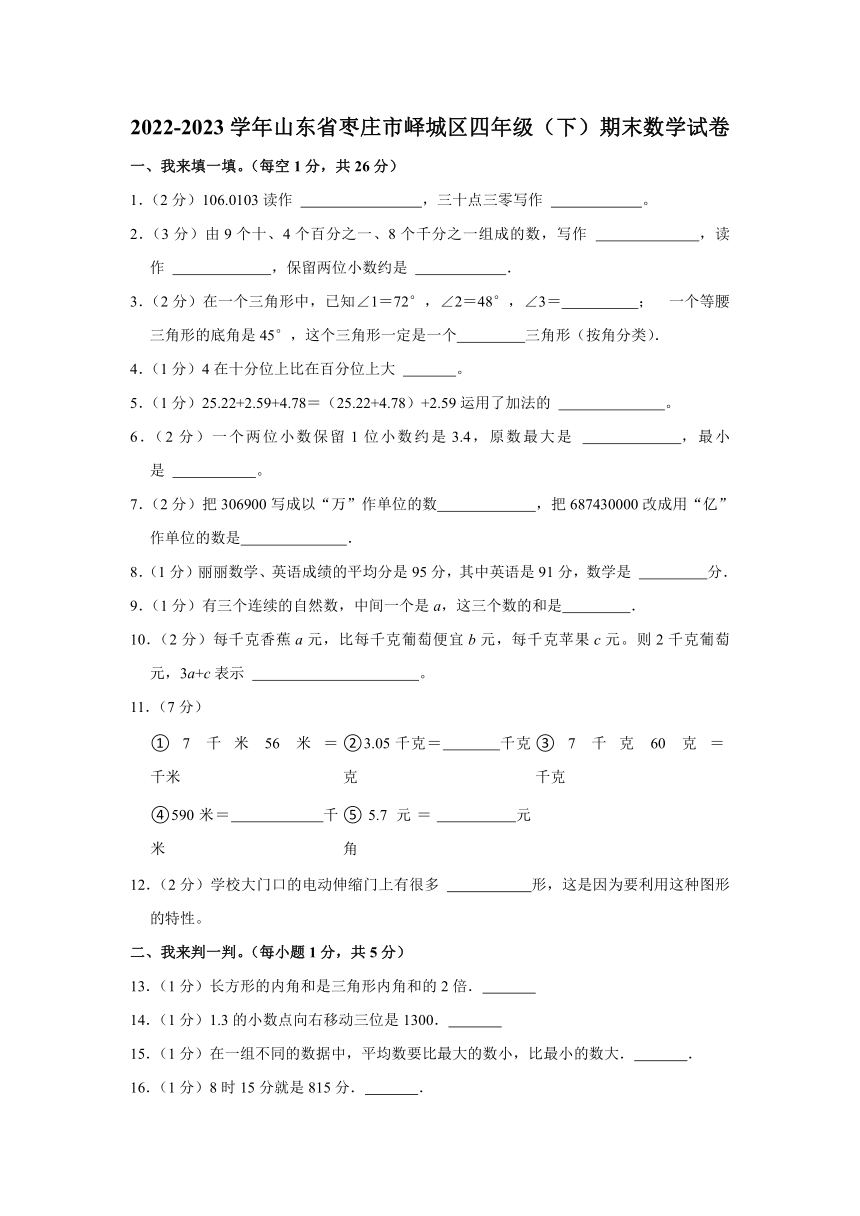 2022-2023 学年山东省枣庄市峄城区四年级（下）期末数学试卷
一、我来填一填。（每空 1 分，共 26 分）
1.（2 分）106.0103 读作 ____________，三十点三零写作 _________。
2.（3 分）由 9 个十、4 个百分之一、8 个千分之一组成的数，写作 __________，读
作 __________，保留两位小数约是 _________．
3.（2 分）在一个三角形中，已知∠1＝72°，∠2＝48°，∠3＝________； 一个等腰
三角形的底角是 45°，这个三角形一定是一个_______三角形（按角分类）．
4.（1 分）4 在十分位上比在百分位上大 _____。
5.（1 分）25.22+2.59+4.78＝（25.22+4.78）+2.59 运用了加法的 __________。
6.（2 分）一个两位小数保留 1 位小数约是 3.4，原数最大是 __________，最小
是 ________。
7.（2 分）把 306900 写成以“万”作单位的数__________，把 687430000 改成用“亿”
作单位的数是__________．
8.（1 分）丽丽数学、英语成绩的平均分是 95 分，其中英语是 91 分，数学是 _______分．
9.（1 分）有三个连续的自然数，中间一个是 a，这三个数的和是_______．
10.（2 分）每千克香蕉 a 元，比每千克葡萄便宜 b 元，每千克苹果 c 元。则 2 千克葡萄
元，3a+c 表示 ________________。
11.（7 分）
① 7 千米 56 米＝ ②3.05 千克＝______千克 ③ 7 千克 60 克＝
千米 克 千克
④590 米＝_________千 ⑤ 5.7 元＝ ________元
米 角
12.（2 分）学校大门口的电动伸缩门上有很多 ________形，这是因为要利用这种图形
的特性。
二、我来判一判。（每小题 1 分，共 5 分）
13.（1 分）长方形的内角和是三角形内角和的 2 倍．_____
14.（1 分）1.3 的小数点向右移动三位是 1300．_____
15.（1 分）在一组不同的数据中，平均数要比最大的数小，比最小的数大．_____．
16.（1 分）8 时 15 分就是 815 分．_____．